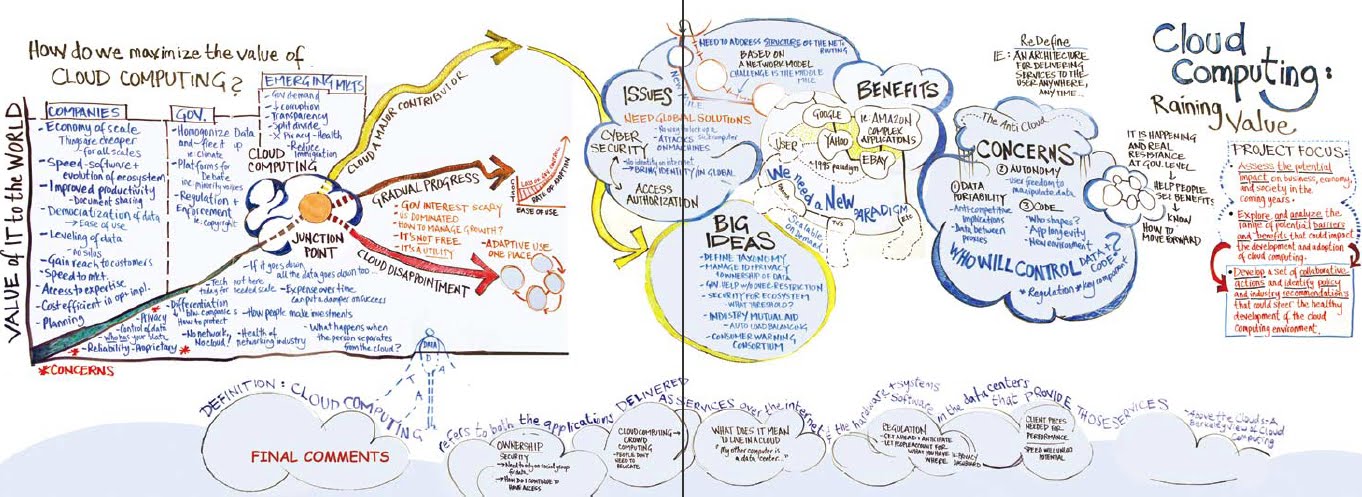 How do we maximize the value of
CLOUD COMPUTING?
VALUE OF IT TO THE WORLD
COMPANIES
- Economy of scale
Things are cheaper
- for all scales
- Speed - software +
evolution of ecosystem
- Improved productivity
- Document sharing
- Democratization of data
- Ease of use
- Leveling of data
- no silos
- Gain reach to customers
- Speed to mkt.
- Access to expertise
- Cost efficient in opt. impl.
- Planning
GOV.
- Homogenize Data
and free it up
ie. climate
- Platforms for
Debate
inc. minority voices
- Regulation +
Enforcement
- copyright
EMERGING MKTS
- Gov demand
- ↓ corruption
- Transparency
- Split divide
- Privacy - Health
- Reduce
Immigration
CLOUD
COMPUTING
JUNCTION
POINT
CLOUD A MAJOR CONTRIBUTOR
GRADUAL PROGRESS
CLOUD DISAPPOINTMENT
- GOV INTEREST SCARY
- US DOMINATED
- HOW TO MANAGE GROWTH?
- IT'S NOT FREE
- IT'S A UTILITY
COST
RATE OF ADOPTION
EASE OF USE
- ADAPTIVE USE
ONE PLACE
- If it goes down
all the data goes down too...
- Tech not here
today for needed scale
- Expense over time
can put a damper on success
- Differentiation
btw. companies
- How to protect
- How people make investments
- Privacy
- Control of data
who has your data
- No network,
No cloud?
- Health of
networking industry
- What happens when
the person separates
from the cloud?
* - Reliability - Proprietary *
* CONCERNS
DATA
DATA
ISSUES
NEED TO ADDRESS STRUCTURE OF THE NET
ROUTING
BASED ON
A NETWORK MODEL
CHALLENGE IS THE MIDDLE
MILE
NEED GLOBAL SOLUTIONS
- ATTACKS
ON MACHINES
CYBER
SECURITY
- No identity on internet
→ BRING IDENTITY/IN GLOBAL
ACCESS
AUTHORIZATION
BIG
IDEAS
- DEFINE TAXONOMY
- MANAGE TO PRIVACY
OWNERSHIP OF DATA
- GOV HELP W/O OVER-RESTRICTION
- SECURITY FOR ECOSYSTEM
WHAT THRESHOLD?
- INDUSTRY MUTUAL AID
- AUTO LOAD BALANCING
- CONSUMER WARNING
CONSORTIUM
BENEFITS
GOOGLE
YAHOO
EBAY
USER
ie: AMAZON
COMPLEX
APPLICATIONS
~1995 paradigm
We need a New PARADIGM
Scalable
on Demand
TVs
etc
ReDefine
IE: AN ARCHITECTURE
FOR DELIVERING
SERVICES TO THE
USER ANYWHERE,
ANYTIME...
The Anti Cloud
CONCERNS
① DATA
PORTABILITY
- Anti-competitive
implications
- Data between
proxies
② AUTONOMY
- user freedom to
manipulate data
③ CODE
- Who shapes?
- App longevity
- New environment
WHO WILL CONTROL DATA + CODE?
* Regulation * key component
IT IS HAPPENING
AND REAL
RESISTANCE
AT GOV. LEVEL
↓
HELP PEOPLE
SEE BENEFITS
↓
KNOW
HOW TO
MOVE FORWARD
Cloud
Computing:
Raining
Value
PROJECT FOCUS:
• Assess the potential
impact on business, economy,
and society in the
coming years.
• Explore and analyze the
range of potential barriers
and benefits that could impact
the development and adoption
of cloud computing.
• Develop a set of collaborative
actions and identify policy
and industry recommendations
that could steer the healthy
development of the cloud
computing environment.
DEFINITION: CLOUD COMPUTING
refers to both the applications DELIVERED AS SERVICES over the internet & the hardware + systems software in the data centers that PROVIDE THOSE SERVICES
- Above the Clouds: A
Berkeley View of Cloud
Computing
FINAL COMMENTS
OWNERSHIP
SECURITY
→ Need to rely on social groups
for data
→ HOW DO I CONTINUE TO
HAVE ACCESS
CLOUD COMPUTING →
CROWD
COMPUTING
- PEOPLE DON'T
NEED TO
DELEGATE
WHAT DOES IT MEAN
TO LIVE IN A CLOUD
"My other computer is
a data center..."
REGULATION
- GET AHEAD + ANTICIPATE
- LET PEOPLE ACCOUNT FOR
WHAT YOU HAVE
WHERE
ie. PRIVACY
DASHBOARD
CLIENT PIECES
NEEDED FOR
PERFORMANCE
- SPEED WILL UNLOCK
POTENTIAL